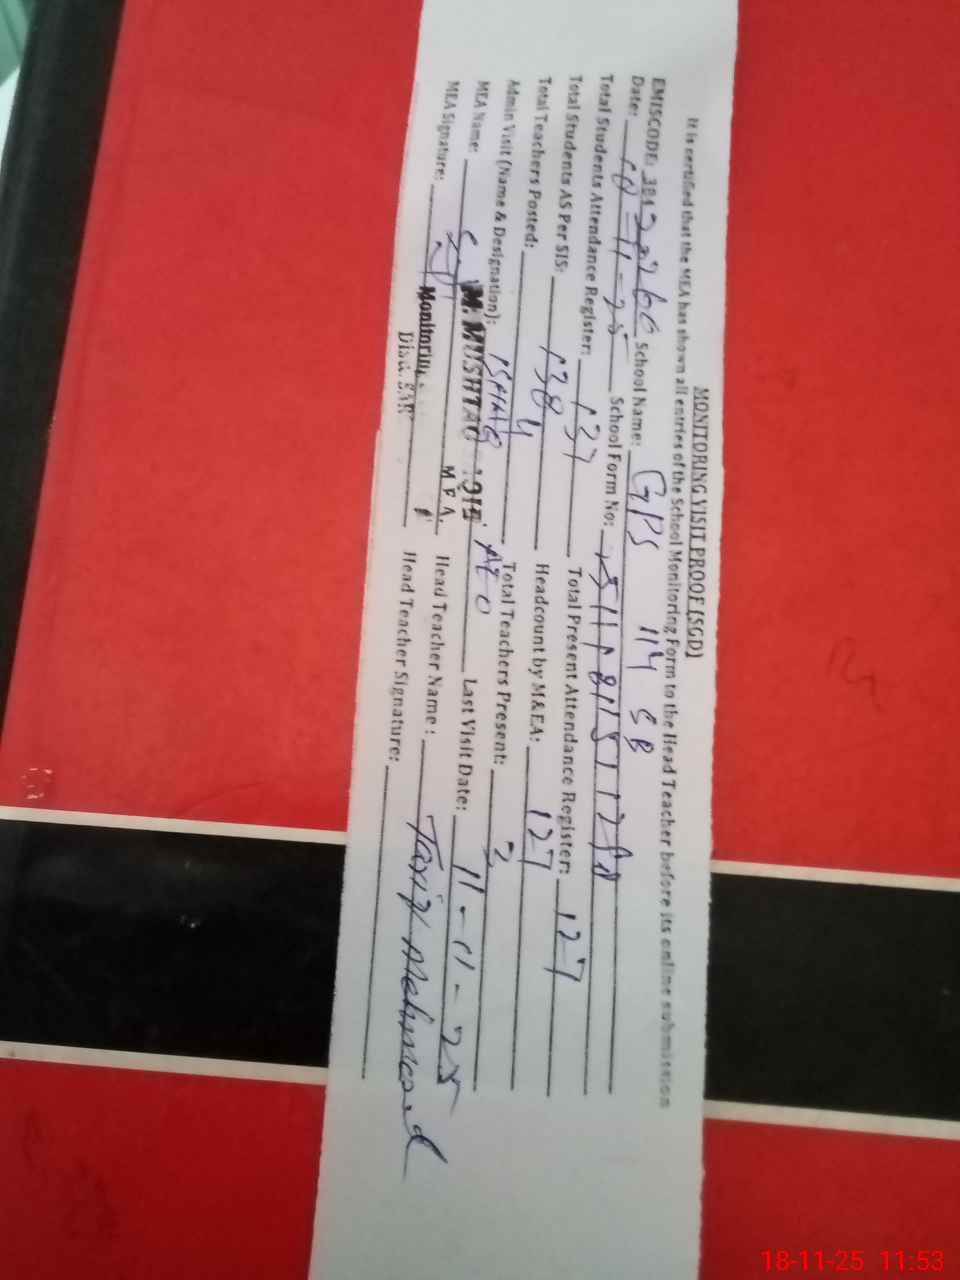 MONITORING VISIT PROOF [SGD]
It is certified that the MEA has shown all entries of the School Monitoring Form to the Head Teacher before its online submission
EMISCODE: School Name: GPS 114 SB
Date: 18-11-25 School Form No:
Total Students Attendance Register: 137 Total Present Attendance Register: 127
Total Students AS Per SIS: 138 Headcount by M&EA: 127
Total Teachers Posted: 4 Total Teachers Present: 3
Admin Visit (Name & Designation): ISHAQ AEO Last Visit Date: 11-11-25
MEA Name: M. MUSHTAQ Head Teacher Name:
M.E.A.
MEA Signature: Head Teacher Signature:
Monitoring
Distt. SAR
18-11-25 11:53